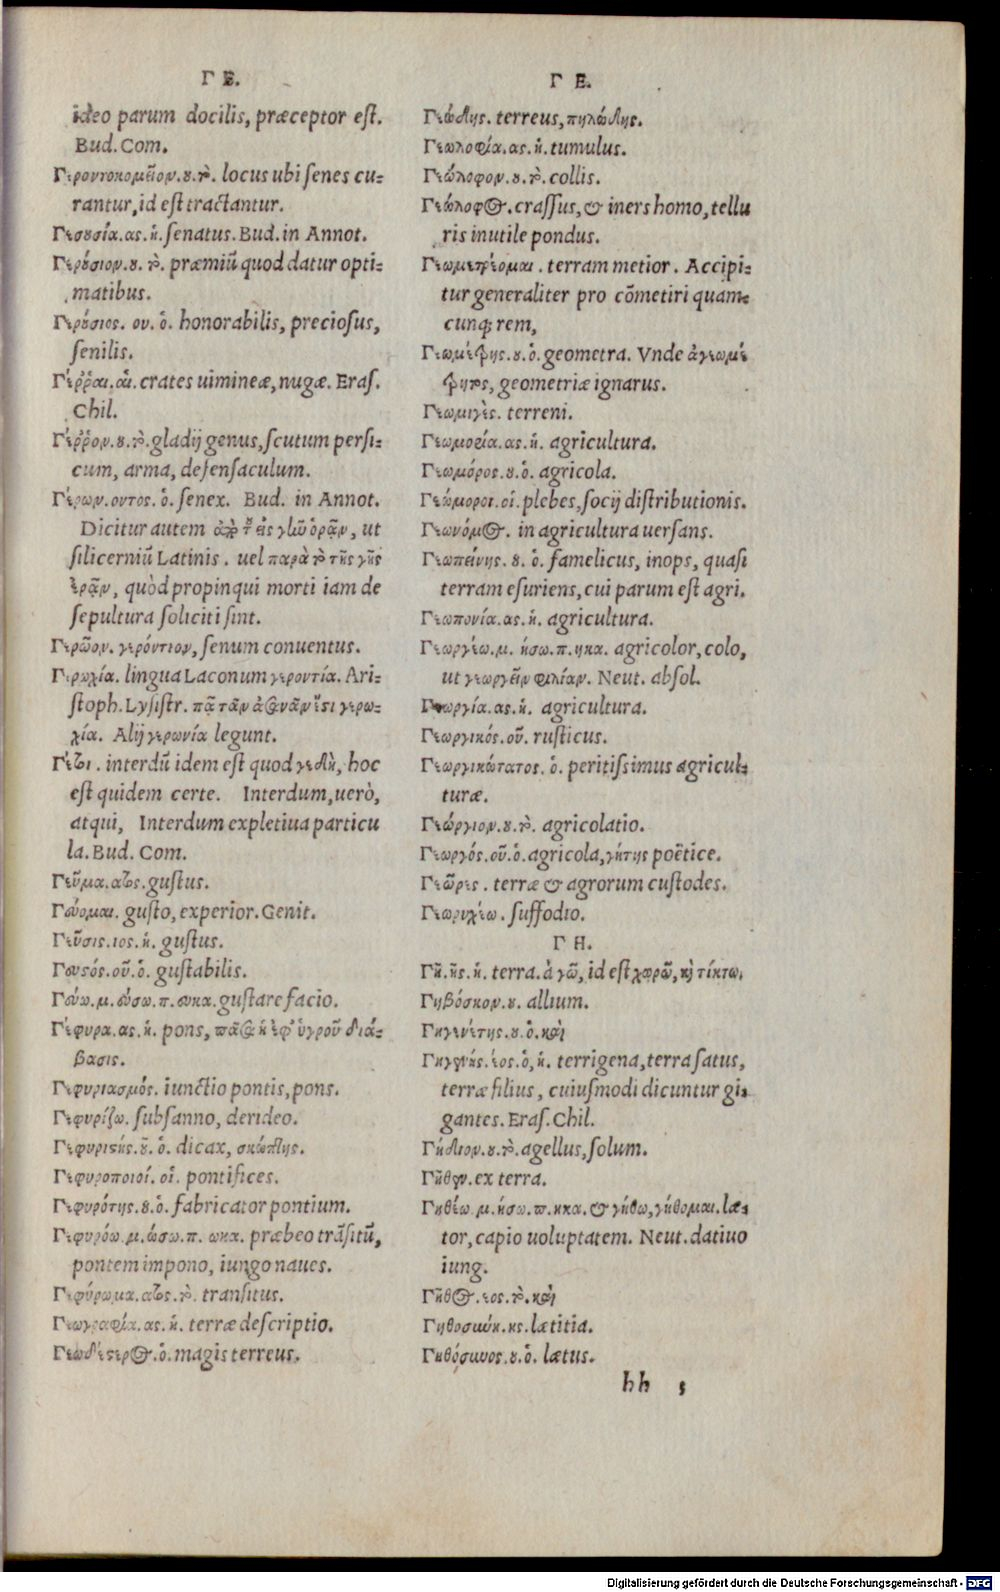 Γ Ε.
ideo parum docilis, præceptor est.
Bud. Com.
Γεροντοκομεῖον.ου.τὸ. locus ubi senes cu-
rantur, id est tractantur.
Γερουσία.ας.ἡ. senatus. Bud. in Annot.
Γερούσιον.ου.τὸ. præmiũ quod datur opti-
matibus.
Γερούσιος. ου. ὁ. honorabilis, preciosus,
senilis.
Γέῤῥαι.αἱ. crates uimineæ, nugæ. Eras.
Chil.
Γέῤῥον.ου.τὸ. gladij genus, scutum persi-
cum, arma, defensaculum.
Γέρων.οντος.ὁ. senex. Bud. in Annot.
Dicitur autem παρὰ τὸ εἰς γῆν ὁρᾷν, ut
silicerniũ Latinis. uel παρὰ τὸ τῆς γῆς
ἐρᾷν, quòd propinqui morti iam de
sepultura soliciti sint.
Γερῶον. γερόντιον, senum conuentus.
Γερωχία. lingua Laconum γεροντία. Ari-
stoph. Lysistr. πᾷ τᾶν ἀσανᾶν ἔστι γερω-
χία. Alij γερωνία legunt.
Γέτοι. interdũ idem est quod γεδὴ, hoc
est quidem certe. Interdum, uerò,
atqui, Interdum expletiua particu
la. Bud. Com.
Γεῦμα.ατος. gustus.
Γεύομαι. gusto, experior. Genit.
Γεῦσις.ιος.ἡ. gustus.
Γευστός.οῦ.ὁ. gustabilis.
Γεύω.μ.εύσω.π.ευκα. gustare facio.
Γέφυρα.ας.ἡ. pons, πᾶσα ἡ ἐφ' ὑγροῦ διά-
βασις.
Γεφυριασμός. iunctio pontis, pons.
Γεφυρίζω. subsanno, derideo.
Γεφυριστής.οῦ. ὁ. dicax, σκώπτης.
Γεφυροποιοί. οἱ. pontifices.
Γεφυρότης.ου.ὁ. fabricator pontium.
Γεφυρόω.μ.ώσω.π. ωκα. præbeo trãsitũ,
pontem impono, iungo naues.
Γεφύρωμα.ατος.τὸ. transitus.
Γεωγραφία.ας.ἡ. terræ descriptio.
Γεωδέστερος.ὁ. magis terreus.
Γ Ε.
Γεώδης. terreus, πηλώδης.
Γεωλοφία.ας.ἡ. tumulus.
Γεώλοφον.ου.τὸ. collis.
Γεώλοφος. crassus, & iners homo, tellu
ris inutile pondus.
Γεωμετρέομαι. terram metior. Accipi-
tur generaliter pro cõmetiri quam-
cunq; rem,
Γεωμέτρης.ου.ὁ. geometra. Vnde ἀγεωμέ
τρητος, geometriæ ignarus.
Γεωμιγὲς. terreni.
Γεωμορία.ας.ἡ. agricultura.
Γεωμόρος.ου.ὁ. agricola.
Γεώμοροι.οἱ. plebes, socij distributionis.
Γεωνόμος. in agricultura uersans.
Γεωπείνης. ου. ὁ. famelicus, inops, quasi
terram esuriens, cui parum est agri.
Γεωπονία.ας.ἡ. agricultura.
Γεωργέω.μ. ήσω.π.ηκα. agricolor, colo,
ut γεωργεῖν φιλίαν. Neut. absol.
Γεωργία.ας.ἡ. agricultura.
Γεωργικός.οῦ. rusticus.
Γεωργικώτατος. ὁ. peritissimus agricul-
turæ.
Γεώργιον.ου.τὸ. agricolatio.
Γεωργός.οῦ.ὁ. agricola, γήτης poëtice.
Γεῶρες. terræ & agrorum custodes.
Γεωρυχέω. suffodio.
Γ Η.
Γῆ.ῆς.ἡ. terra. ἀ γῶ, id est χωρῶ, καὶ τίκτω.
Γηβόσκον.ου. allium.
Γηγενέτης.ου.ὁ.καὶ
Γηγενής.έος.ὁ,ἡ. terrigena, terra satus,
terræ filius, cuiusmodi dicuntur gi-
gantes. Eras. Chil.
Γήδιον.ου.τὸ. agellus, solum.
Γῆθεν. ex terra.
Γηθέω.μ.ήσω.π.ηκα. & γήθω, γήθομαι. læ-
tor, capio uoluptatem. Neut. datiuo
iung.
Γῆθος.εος.τὸ.καὶ
Γηθοσύνη.ης. lætitia.
Γηθόσυνος.ου.ὁ. lætus.
hh 5
Digitalisierung gefördert durch die Deutsche Forschungsgemeinschaft - DFG